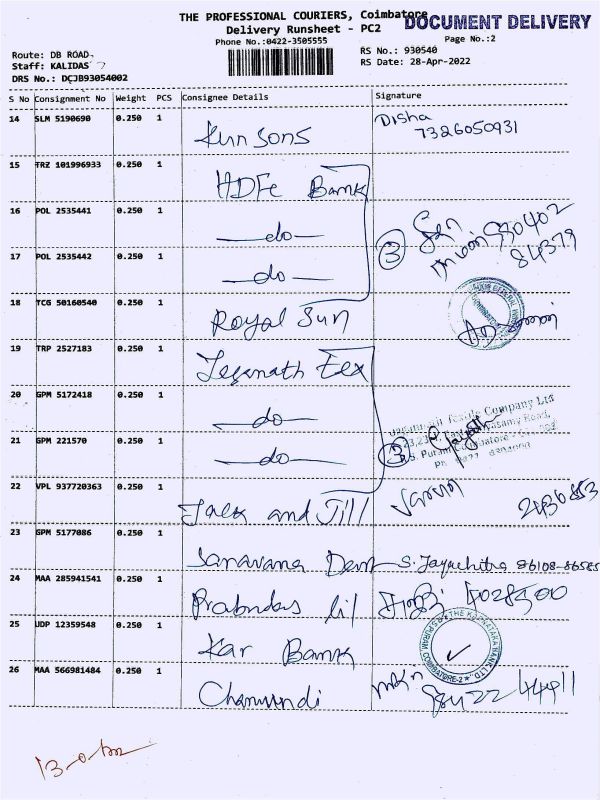 THE PROFESSIONAL COURIERS, Coimbatore
DOCUMENT DELIVERY
Delivery Runsheet - PC2
Phone No.:0422-3505555
Page No.:2
Route: DB ROAD
RS No.: 930540
Staff: KALIDAS
RS Date: 28-Apr-2022
DRS No.: DCJB93054002
S No Consignment No Weight PCS Consignee Details Signature
14 SLM 5190690 0.250 1 Kun Sons Disha
7326050931
15 TRZ 101996933 0.250 1 HDFC Bank
16 POL 2535441 0.250 1 —do—
3
17 POL 2535442 0.250 1 —do—
84379
18 TCG 50160540 0.250 1 Royal Sun
19 TRP 2527183 0.250 1 Jeganath Tex
20 GPM 5172418 0.250 1 —do—
Textile Company Ltd
21 GPM 221570 0.250 1 —do— 3
22 VPL 937720363 0.250 1 Jack and Jill
23 GPM 5177086 0.250 1 Saravana Dent S. Jayachitra 86108-86585
24 MAA 285941541 0.250 1 Prabhudas lil
25 UDP 12359548 0.250 1 Kar Bank
THE KARNATAKA BANK LTD.
COIMBATORE-2
26 MAA 566981484 0.250 1 Chamundi